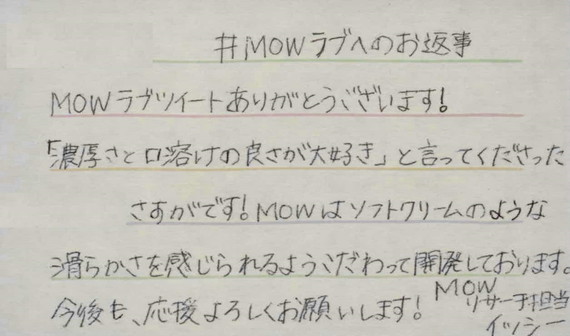 #MOWラブへのお返事
MOWラブツイートありがとうございます!
「濃厚さと口溶けの良さが大好き」と言ってくださった
さすがです!MOWはソフトクリームのような
滑らかさを感じられるようこだわって開発しております。
今後も、応援よろしくお願いします!
MOW
リサーチ担当
イッシー